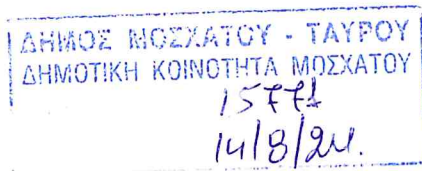 ΔΗΜΟΣ ΜΟΣΧΑΤΟΥ - ΤΑΥΡΟΥ
ΔΗΜΟΤΙΚΗ ΚΟΙΝΟΤΗΤΑ ΜΟΣΧΑΤΟΥ
15771
14/8/24.